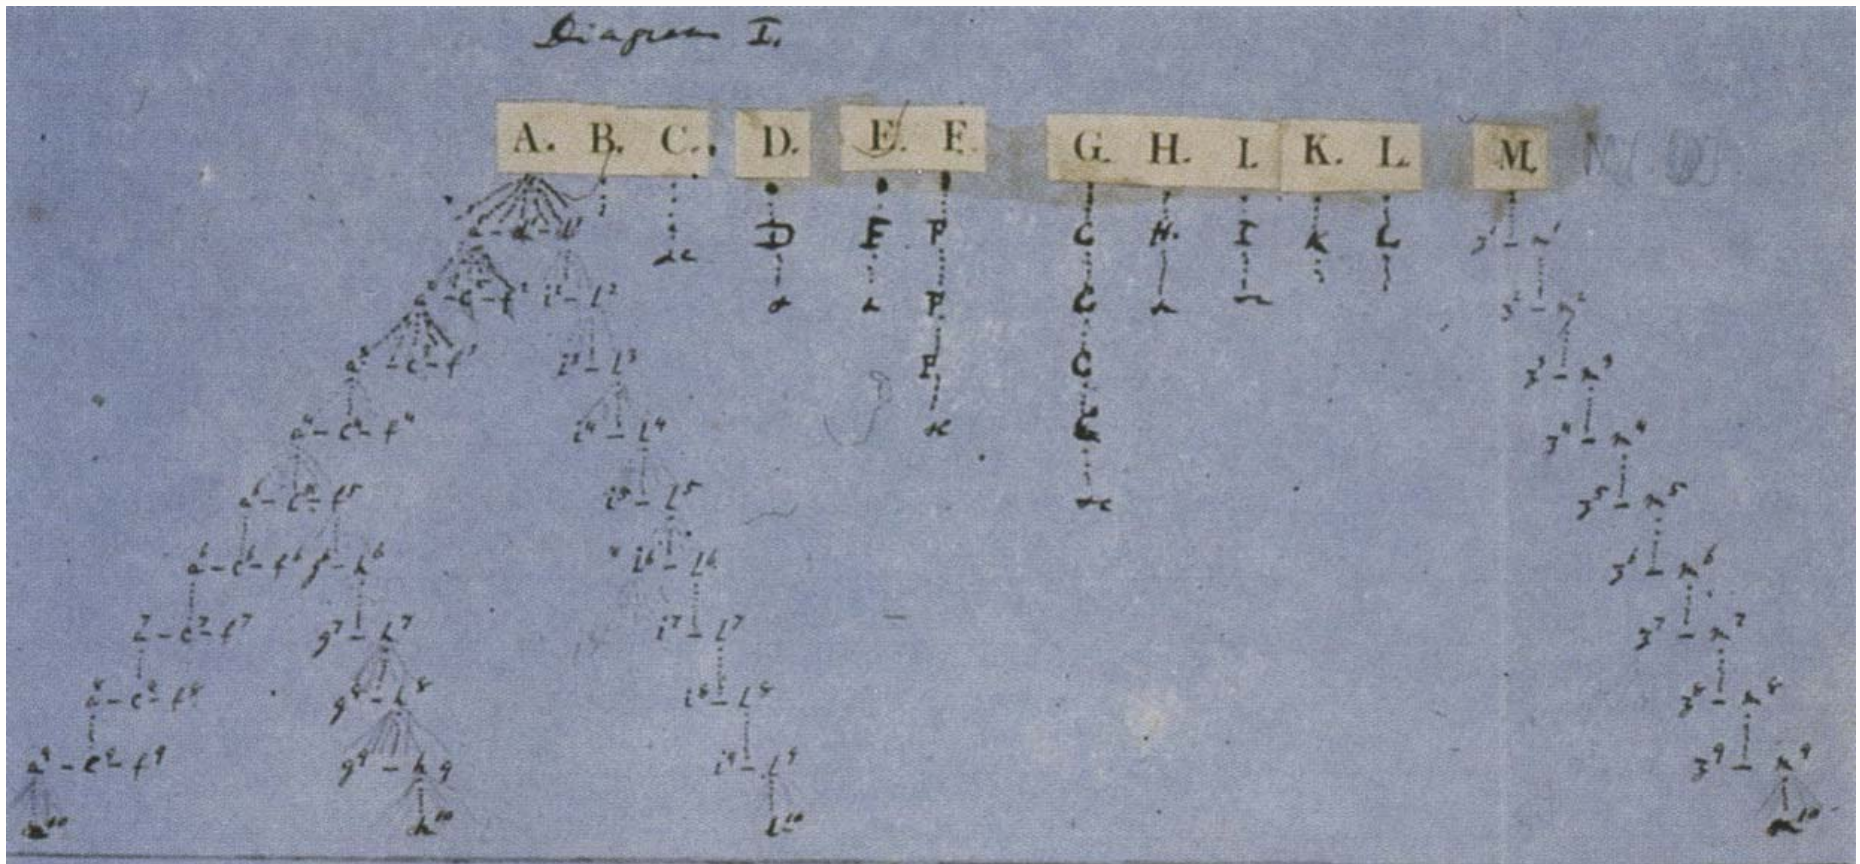 Diagram I.
A. B. C. D. E. F. G. H. I. K. L. M.
D E F G H. I K L z¹ – n¹
a² – c² – f² i² – l² F G z² – n²
a³ – c³ – f³ i³ – l³ F G z³ – n³
a⁴ – c⁴ – f⁴ i⁴ – l⁴ G z⁴ – n⁴
a⁵ – c⁵ – f⁵ i⁵ – l⁵ z⁵ – n⁵
a⁶ – c⁶ – f⁶ g⁶ – h⁶ i⁶ – l⁶ z⁶ – n⁶
a⁷ – c⁷ – f⁷ g⁷ – h⁷ i⁷ – l⁷ z⁷ – n⁷
a⁸ – c⁸ – f⁸ g⁸ – h⁸ i⁸ – l⁸ z⁸ – n⁸
a⁹ – c⁹ – f⁹ g⁹ – h⁹ i⁹ – l⁹ z⁹ – n⁹
a¹⁰ h¹⁰ l¹⁰ n¹⁰